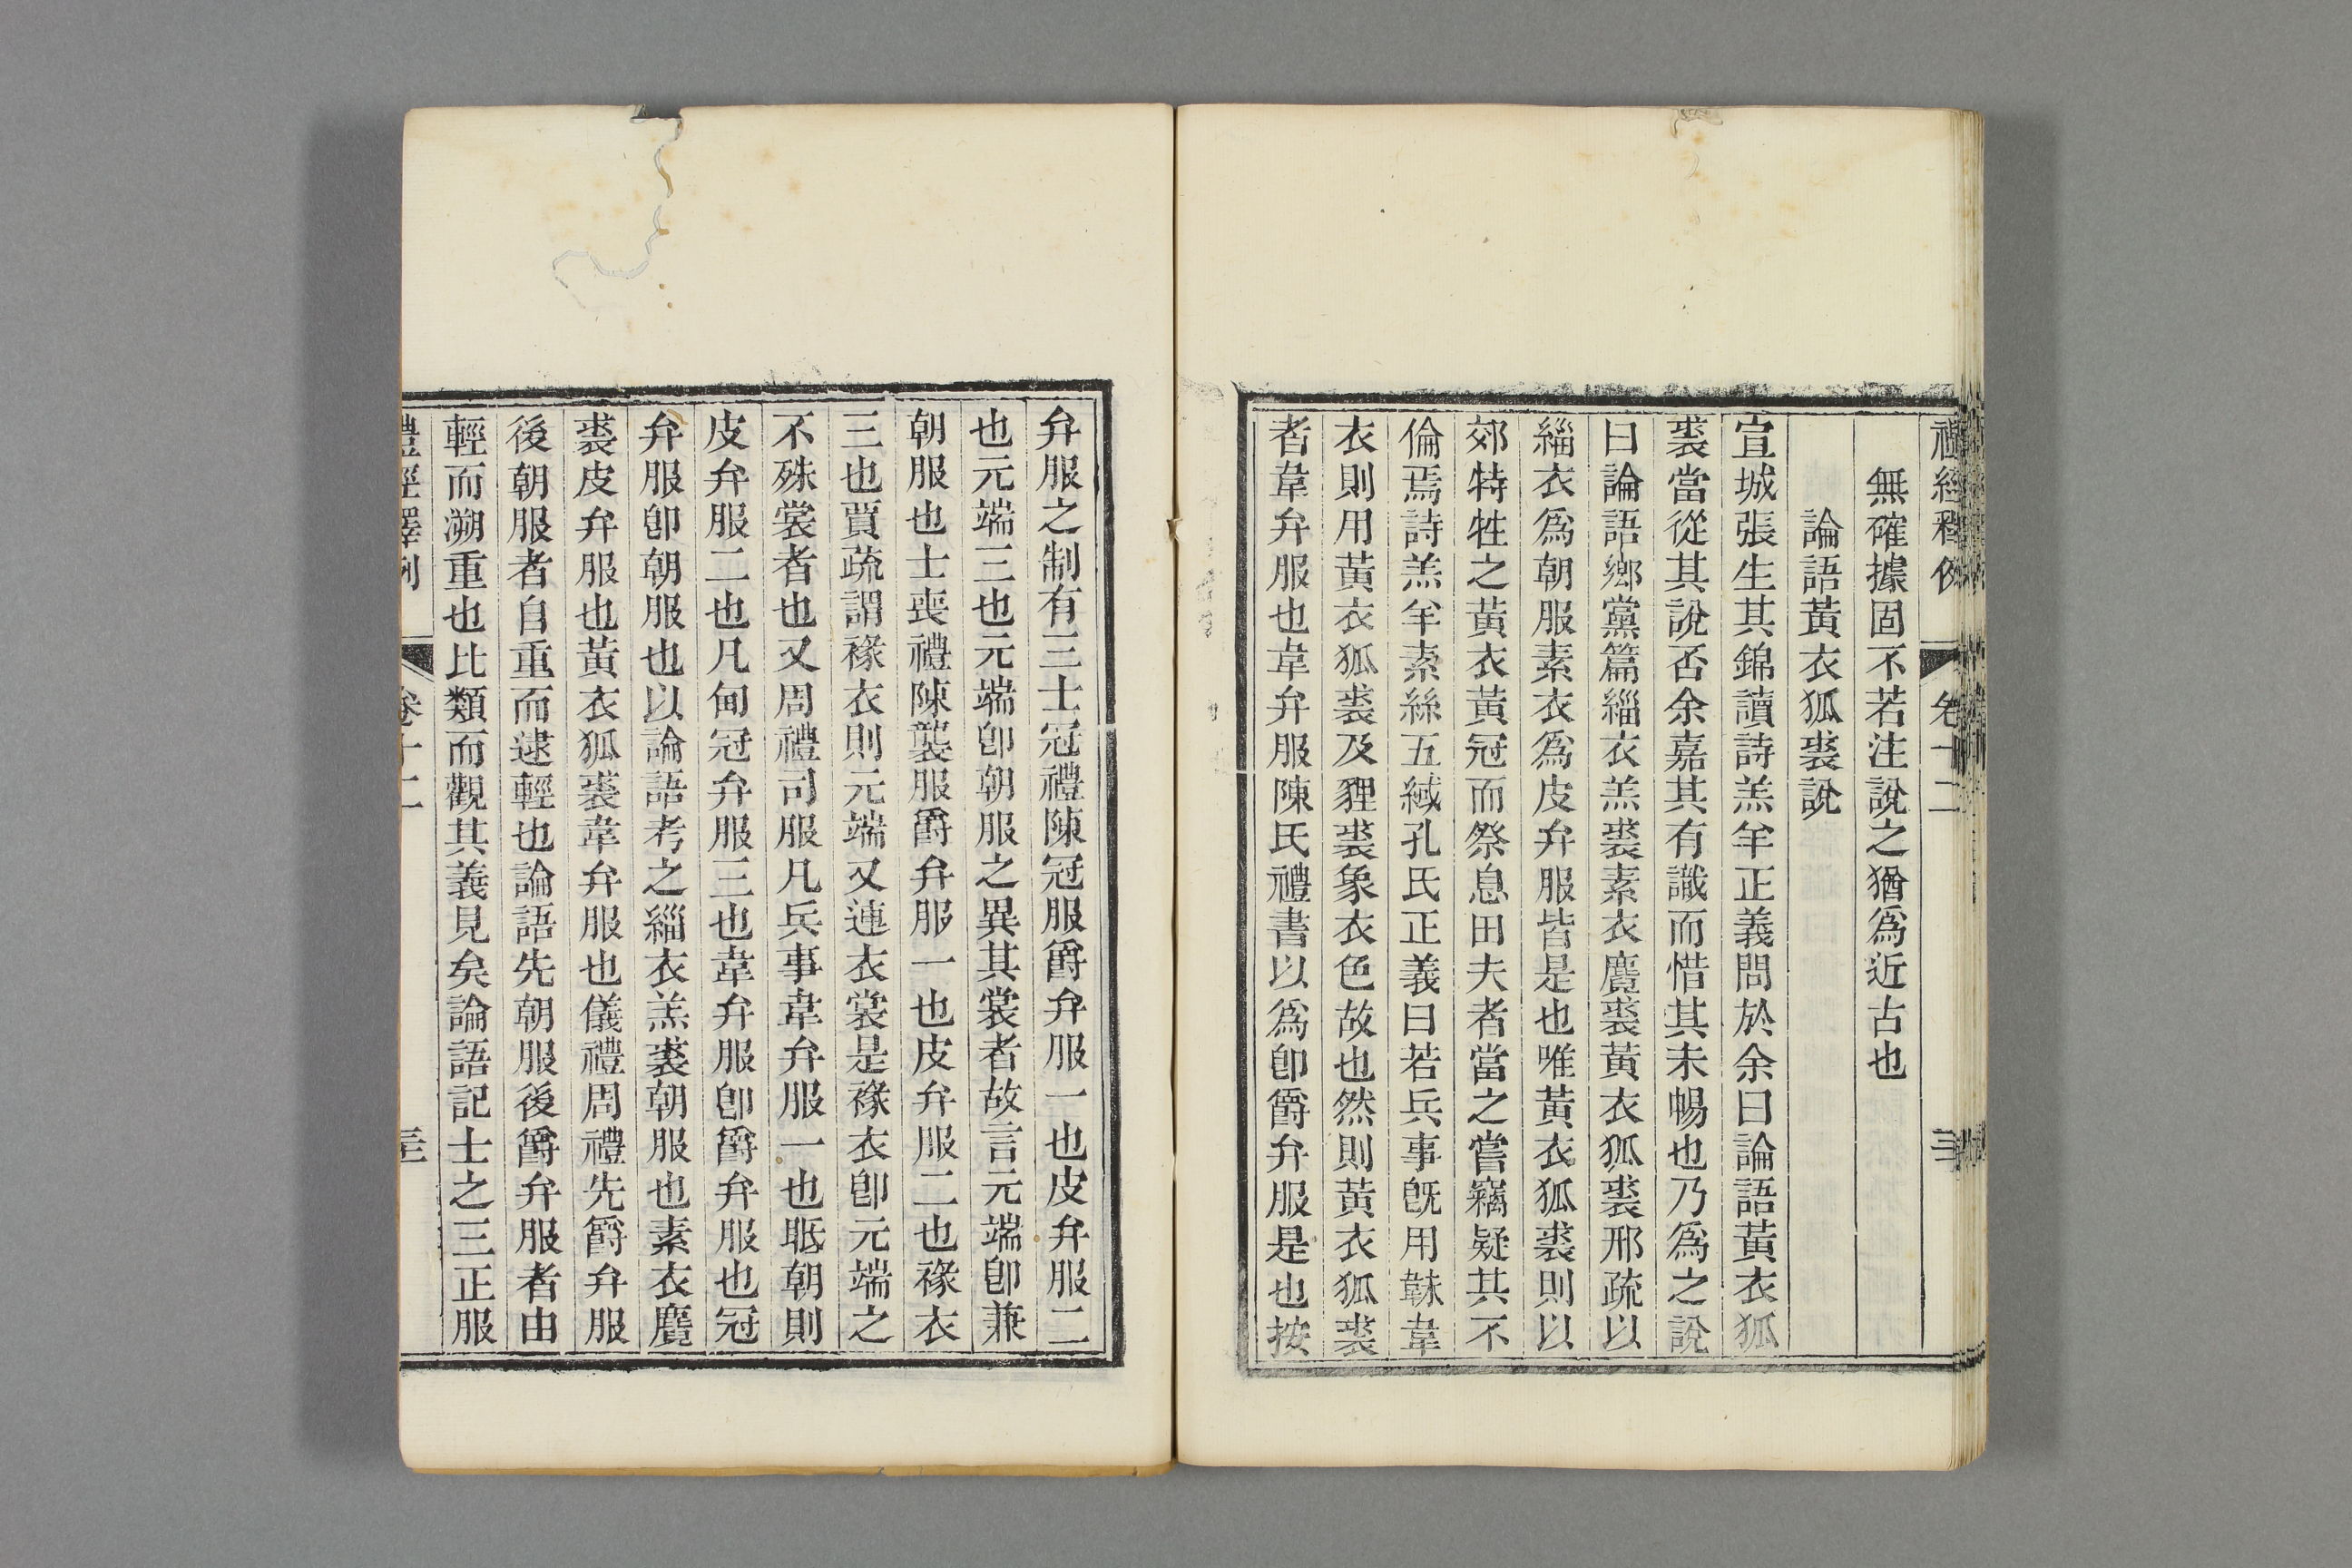 禮經釋例
卷十二
無確據固不若注說之猶爲近古也
論語黃衣狐裘說
宣城張生其錦讀詩羔羊正義問於余曰論語黃衣狐
裘當從其說否余嘉其有識而惜其未暢也乃爲之說
曰論語鄉黨篇緇衣羔裘素衣麑裘黃衣狐裘邢疏以
緇衣爲朝服素衣爲皮弁服皆是也唯黃衣狐裘則以
郊特牲之黃衣黃冠而祭息田夫者當之嘗竊疑其不
倫焉詩羔羊素絲五緎孔氏正義曰若兵事旣用韎韋
衣則用黃衣狐裘及貍裘象衣色故也然則黃衣狐裘
者韋弁服也韋弁服陳氏禮書以爲卽爵弁服是也按
弁服之制有三士冠禮陳冠服爵弁服一也皮弁服二
也元端三也元端卽朝服之異其裳者故言元端卽兼
朝服也士喪禮陳襲服爵弁服一也皮弁服二也褖衣
三也賈疏謂褖衣則元端又連衣裳是褖衣卽元端之
不殊裳者也又周禮司服凡兵事韋弁服一也眡朝則
皮弁服二也凡甸冠弁服三也韋弁服卽爵弁服也冠
弁服卽朝服也以論語考之緇衣羔裘朝服也素衣麑
裘皮弁服也黃衣狐裘韋弁服也儀禮周禮先爵弁服
後朝服者自重而逮輕也論語先朝服後爵弁服者由
輕而溯重也比類而觀其義見矣論語記士之三正服
禮經釋例
卷十二